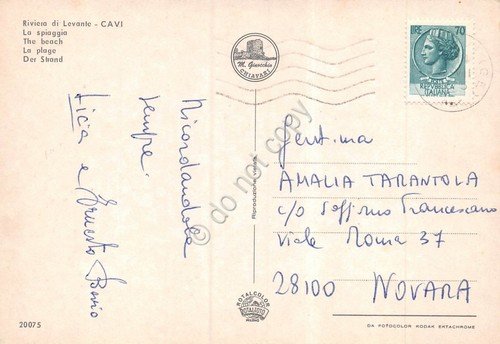 Riviera di Levante - CAVI
La spiaggia
The beach
La plage
Der Strand
Ricordandola
sempre.
Licia e Ernesto
M. Ginocchio
CHIAVARI
LIRE 70
REPUBBLICA
ITALIANA
Gent.ma
AMALIA TARANTOLA
c/o Soffrino Francescano
Viale Roma 37
28100 NOVARA
Riproduzione
ROTALCOLOR
ROTALFOTO
MILANO
20075
DA FOTOCOLOR KODAK EKTACHROME
do not copy